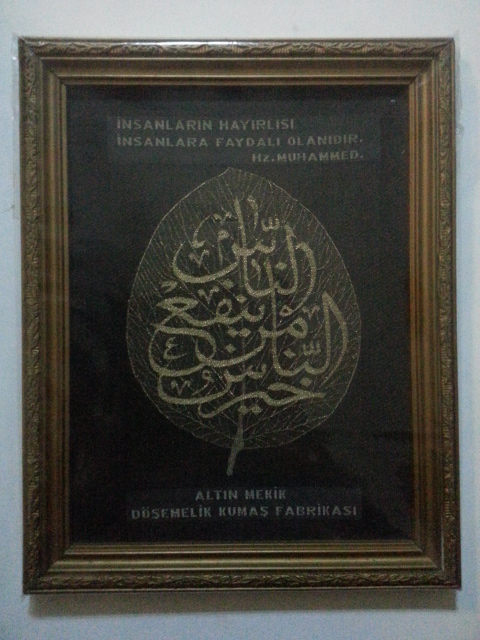 İNSANLARIN HAYIRLISI
İNSANLARA FAYDALI OLANIDIR.
Hz. MUHAMMED.
خير الناس من ينفع الناس
ALTIN MEKİK
DÖŞEMELİK KUMAŞ FABRİKASI